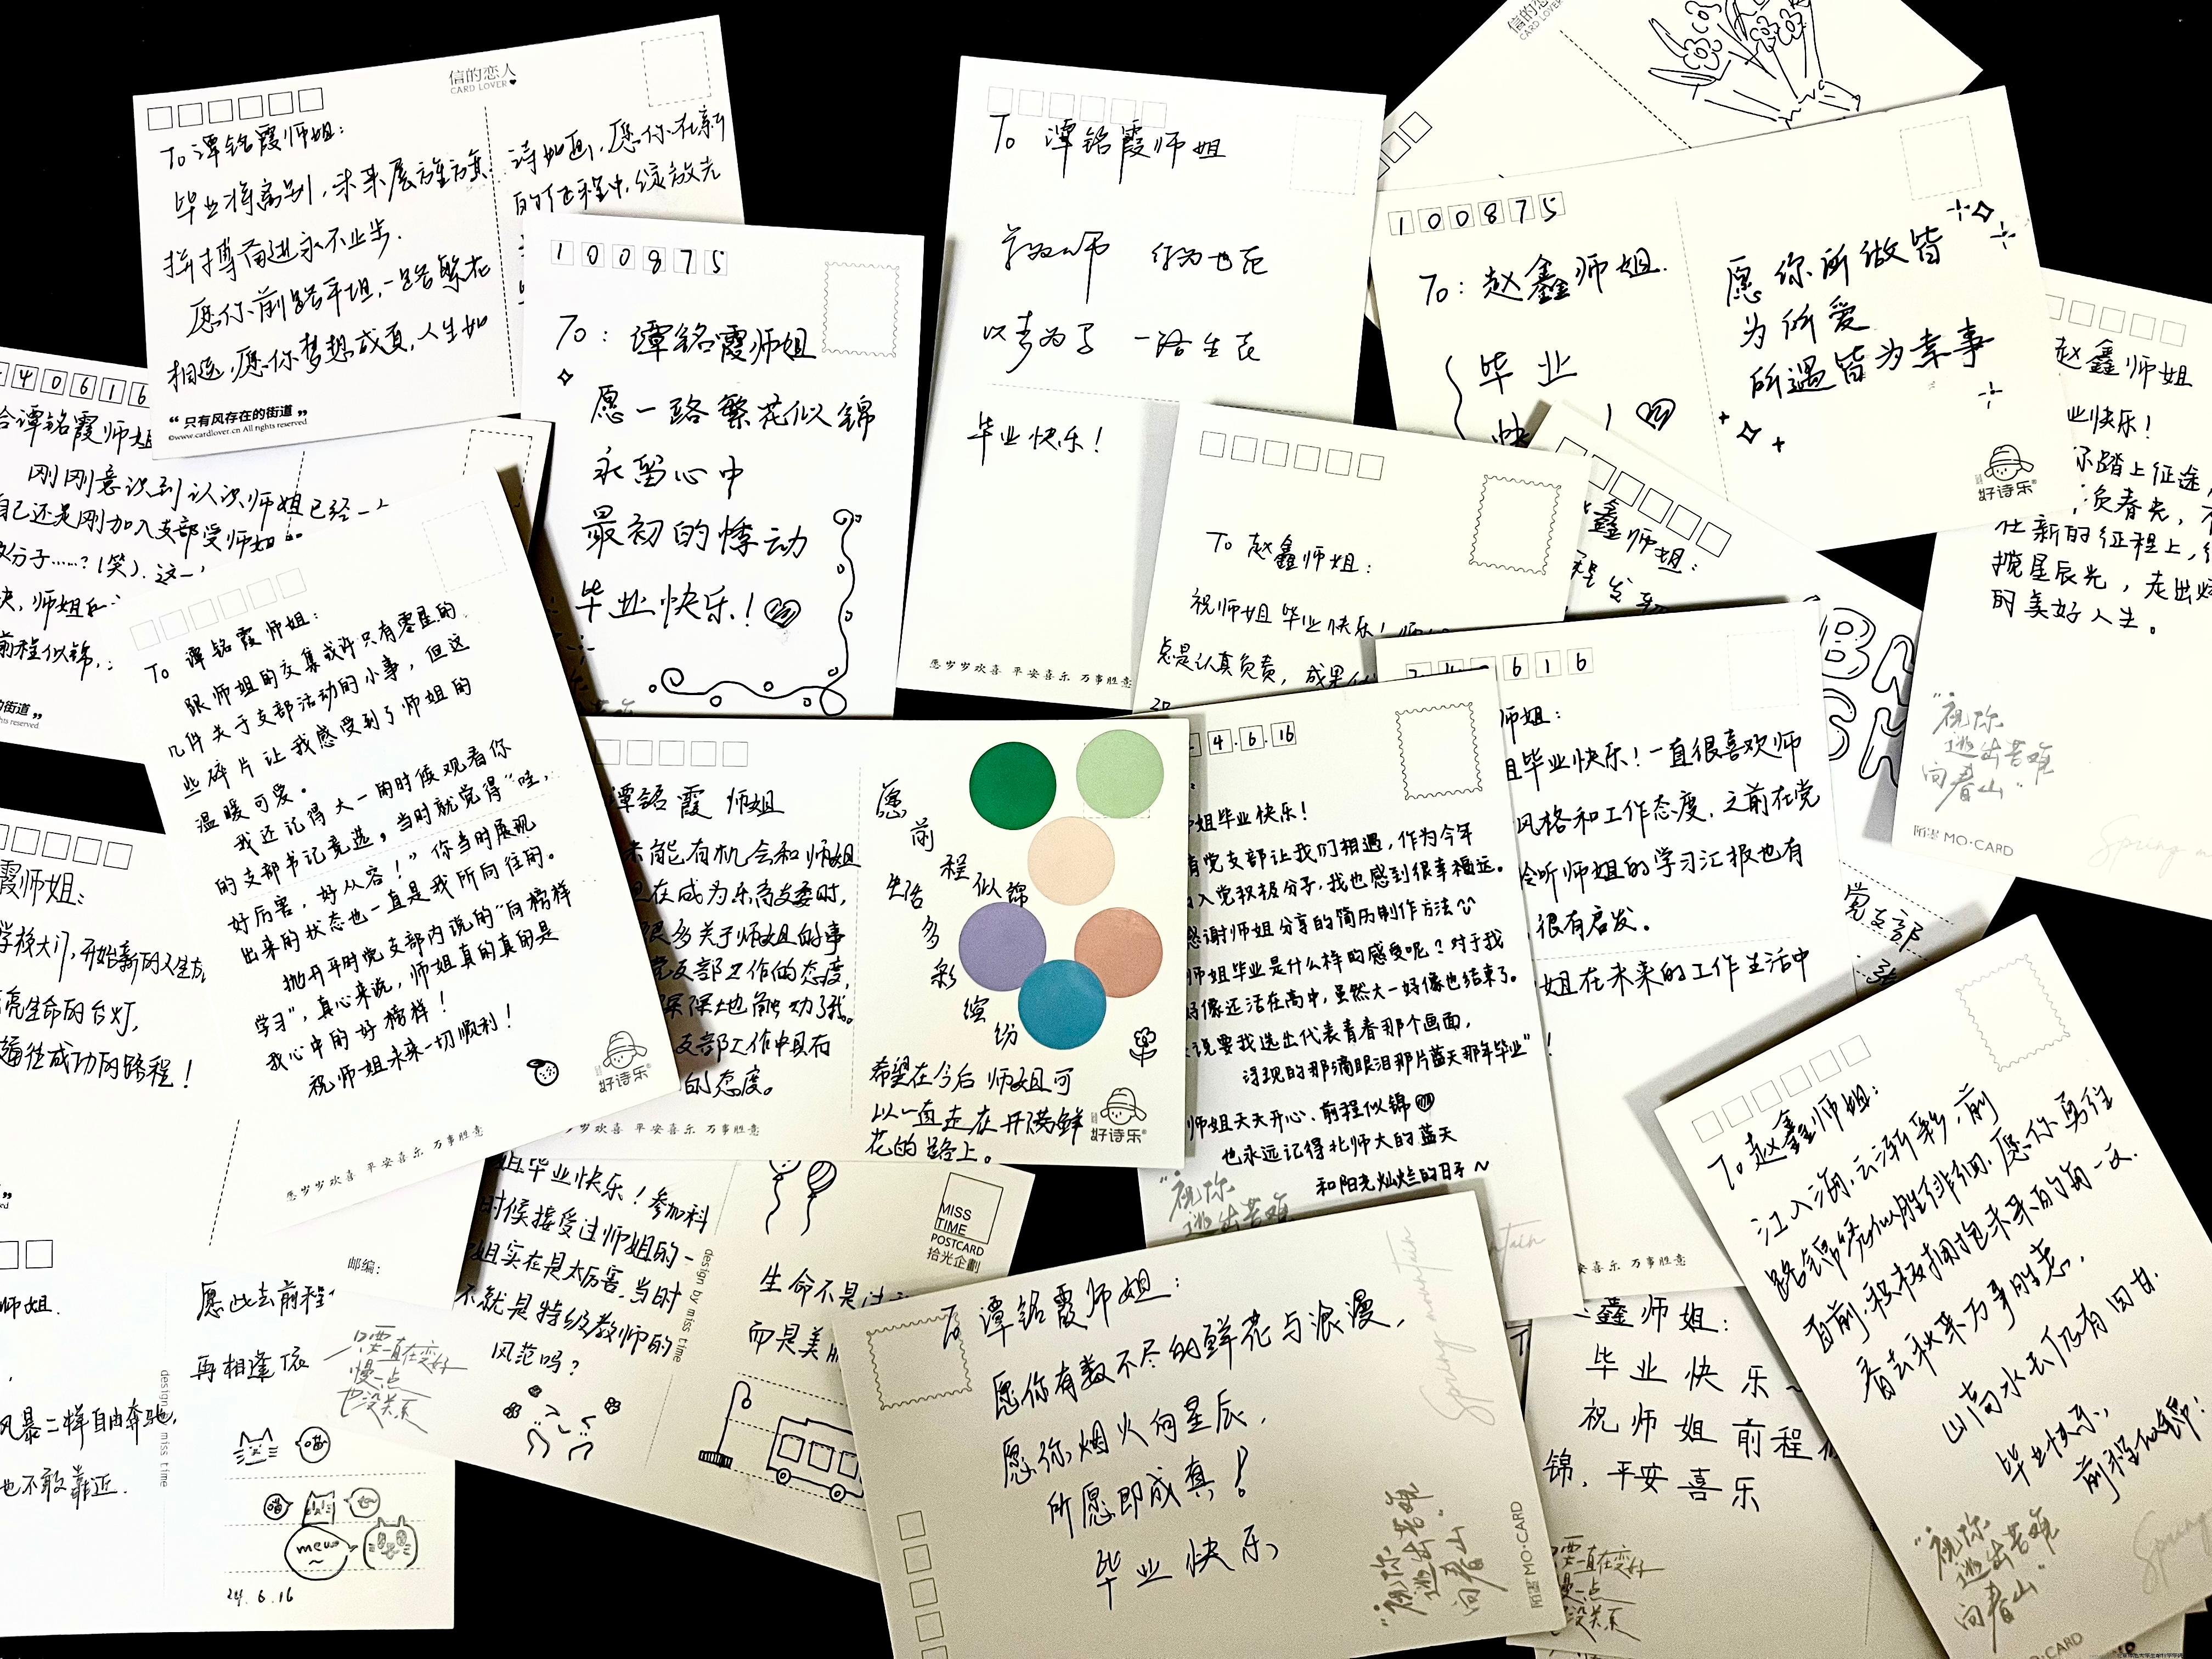 信的恋人
CARD LOVER
To 谭铭霞师姐:
毕业将离别,未来展雄旗.
拼搏奋进永不止步.
愿你前路平坦,一路繁花
相送,愿你梦想成真,人生如
诗如画,愿你在新
的征程中,绽放光
“只有风存在的街道”
©www.cardlover.cn All rights reserved
100875
To: 谭铭霞师姐
愿一路繁花似锦
永留心中
最初的悸动
毕业快乐!
To 谭铭霞师姐
学为人师 行为世范
以梦为马 一路生花
毕业快乐!
愿岁岁欢喜 平安喜乐 万事胜意
信的恋
CARD LOVER
100875
To: 赵鑫师姐.
毕业
快
愿你所做皆
为所爱
所遇皆为幸事
好诗乐
赵鑫师姐
业快乐!
踏上征途,
负春光,不
在新的征程上,
揽星辰光,走出
的美好人生。
“祝你
逃出苦难
向春山”
陌書 MO·CARD
40616
给谭铭霞师姐
刚刚意识到认识师姐已经一
自己还是刚加入支部受师姐
分子……?(笑).这一
快,师姐
前程似锦,
的街道”
hts reserved
To 谭铭霞师姐:
跟师姐的交集或许只有零星的
几件关于支部活动的小事,但这
些碎片让我感受到了师姐的
温暖可爱。
我还记得大一的时候观看你
的支部书记竞选,当时就觉得“哇,
好厉害,好从容!”你当时展现
出来的状态也一直是我所向往的。
抛开平时党支部内说的“向榜样
学习”,真心来说,师姐真的真的是
我心中的好榜样!
祝师姐未来一切顺利!
好诗乐
愿岁岁欢喜 平安喜乐 万事胜意
To 赵鑫师姐:
祝师姐毕业快乐!
总是认真负责,成果
鑫师姐:
谭铭霞 师姐
未能有机会和师姐
但在成为乐高支委时,
很多关于师姐的事
党支部工作的态度,
深深地触动了我。
支部工作中具有
的态度。
愿前程似锦
生活多彩缤纷
希望在今后 师姐可
以一直走在开满鲜
花的路上。
好诗乐
岁欢喜 平安喜乐 万事胜意
4.6.16
姐毕业快乐!
有党支部让我们相遇,作为今年
入党积极分子,我也感到很幸福远。
感谢师姐分享的简历制作方法
师姐毕业是什么样的感受呢?对于我
好像还活在高中,虽然大一好像也结束了。
说要我选出代表青春那个画面,
浮现的那滴眼泪那片蓝天那年毕业”!
师姐天天开心、前程似锦
也永远记得北师大的蓝天
和阳光灿烂的日子~
“祝你
逃出苦难
616
师姐:
姐毕业快乐!一直很喜欢师
风格和工作态度,之前在党
聆听师姐的学习汇报也有
很有启发。
姐在未来的工作生活中
安喜乐 万事胜意
党支部
霞师姐:
学校大门,开始新的人生
亮生命的台灯,
通往成功的路程!
师姐.
风暴一样自由奔驰,
也不敢靠近.
design miss time
愿此去前程
再相逢依
喵
喵
mew~
24.6.16
邮编:
只要一直在变好
慢一点
也没关系
姐毕业快乐!参加科
时候接受过师姐的一
姐实在是太厉害,当时
不就是特级教师的
风范吗?
design by miss time
MISS
TIME
POSTCARD
拾光企劃
生命不是
而是美
To 谭铭霞师姐:
愿你有数不尽的鲜花与浪漫,
愿你烟火向星辰,
所愿即成真!
毕业快乐
Spring mountain
“祝你
逃出苦难
向春山”
陌書 MO·CARD
鑫师姐:
毕业快乐~
祝师姐前程
锦,平安喜乐
只要一直在变好
慢一点
也没关系
To 赵鑫师姐:
江入海,云渐彩,前
路锦绣似胜绯细.愿你勇往
直前,积极拥抱未来的每一文.
春去秋来万事胜意,
山高水长仍有回甘.
毕业快乐,
前程似锦!
“祝你
逃出苦难
向春山”
Spring
CARD